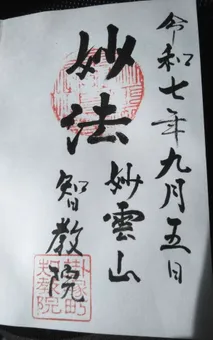 令和七年九月五日
妙法
妙雲山
智教院